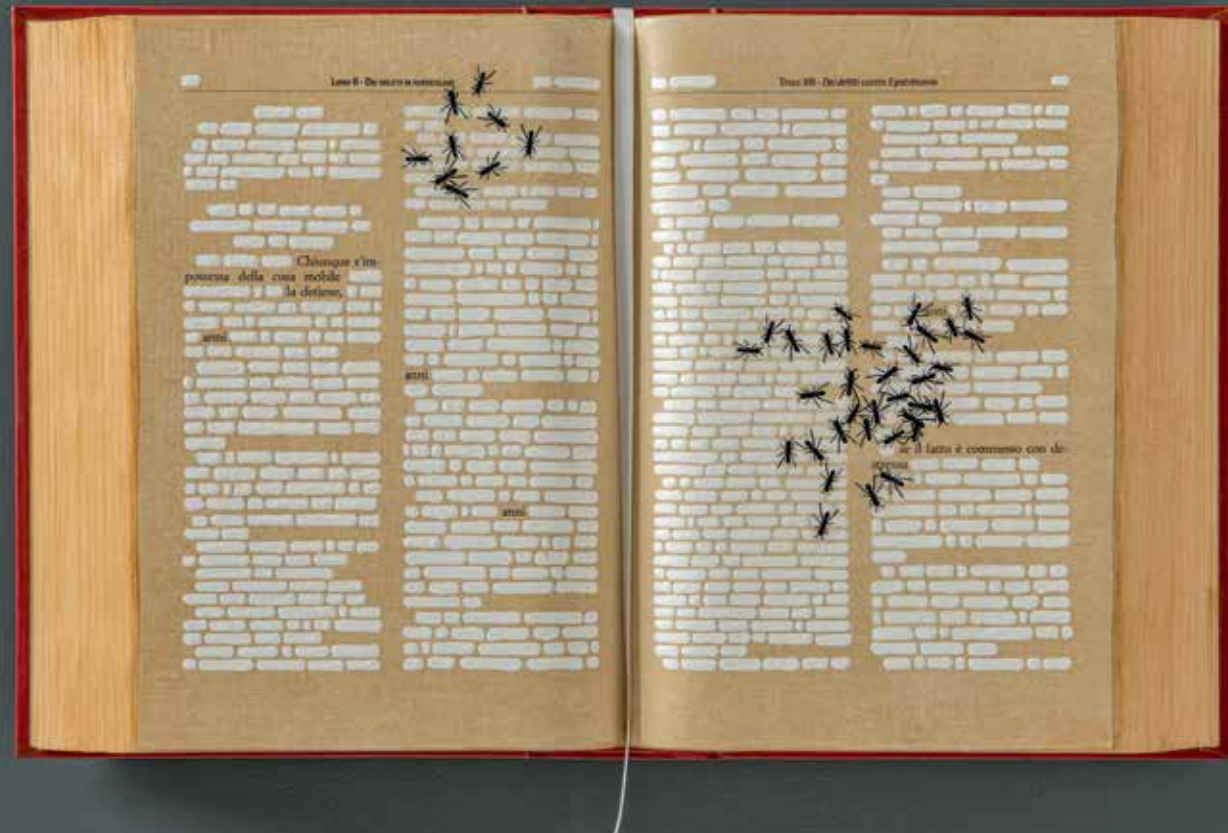 Libro II - Dei delitti in particolare
Chiunque s'im-
possessa della cosa mobile
la detiene,
anni
anni
anni
Titolo XIII - Dei delitti contro il patrimonio
se il fatto è commesso con de-
strezza